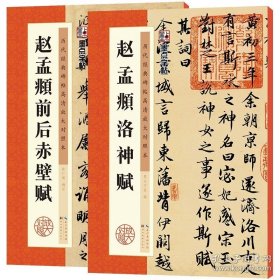 历代经典碑帖高清放大对照本
赵孟頫前后赤壁赋
历代经典碑帖高清放大对照本
赵孟頫洛神赋
黄初三年余朝京師還濟洛川
有言斯水之神名曰宓妃感宋
對楚王說神女之事遂作斯賦
其詞曰
域言歸東藩背伊闕越